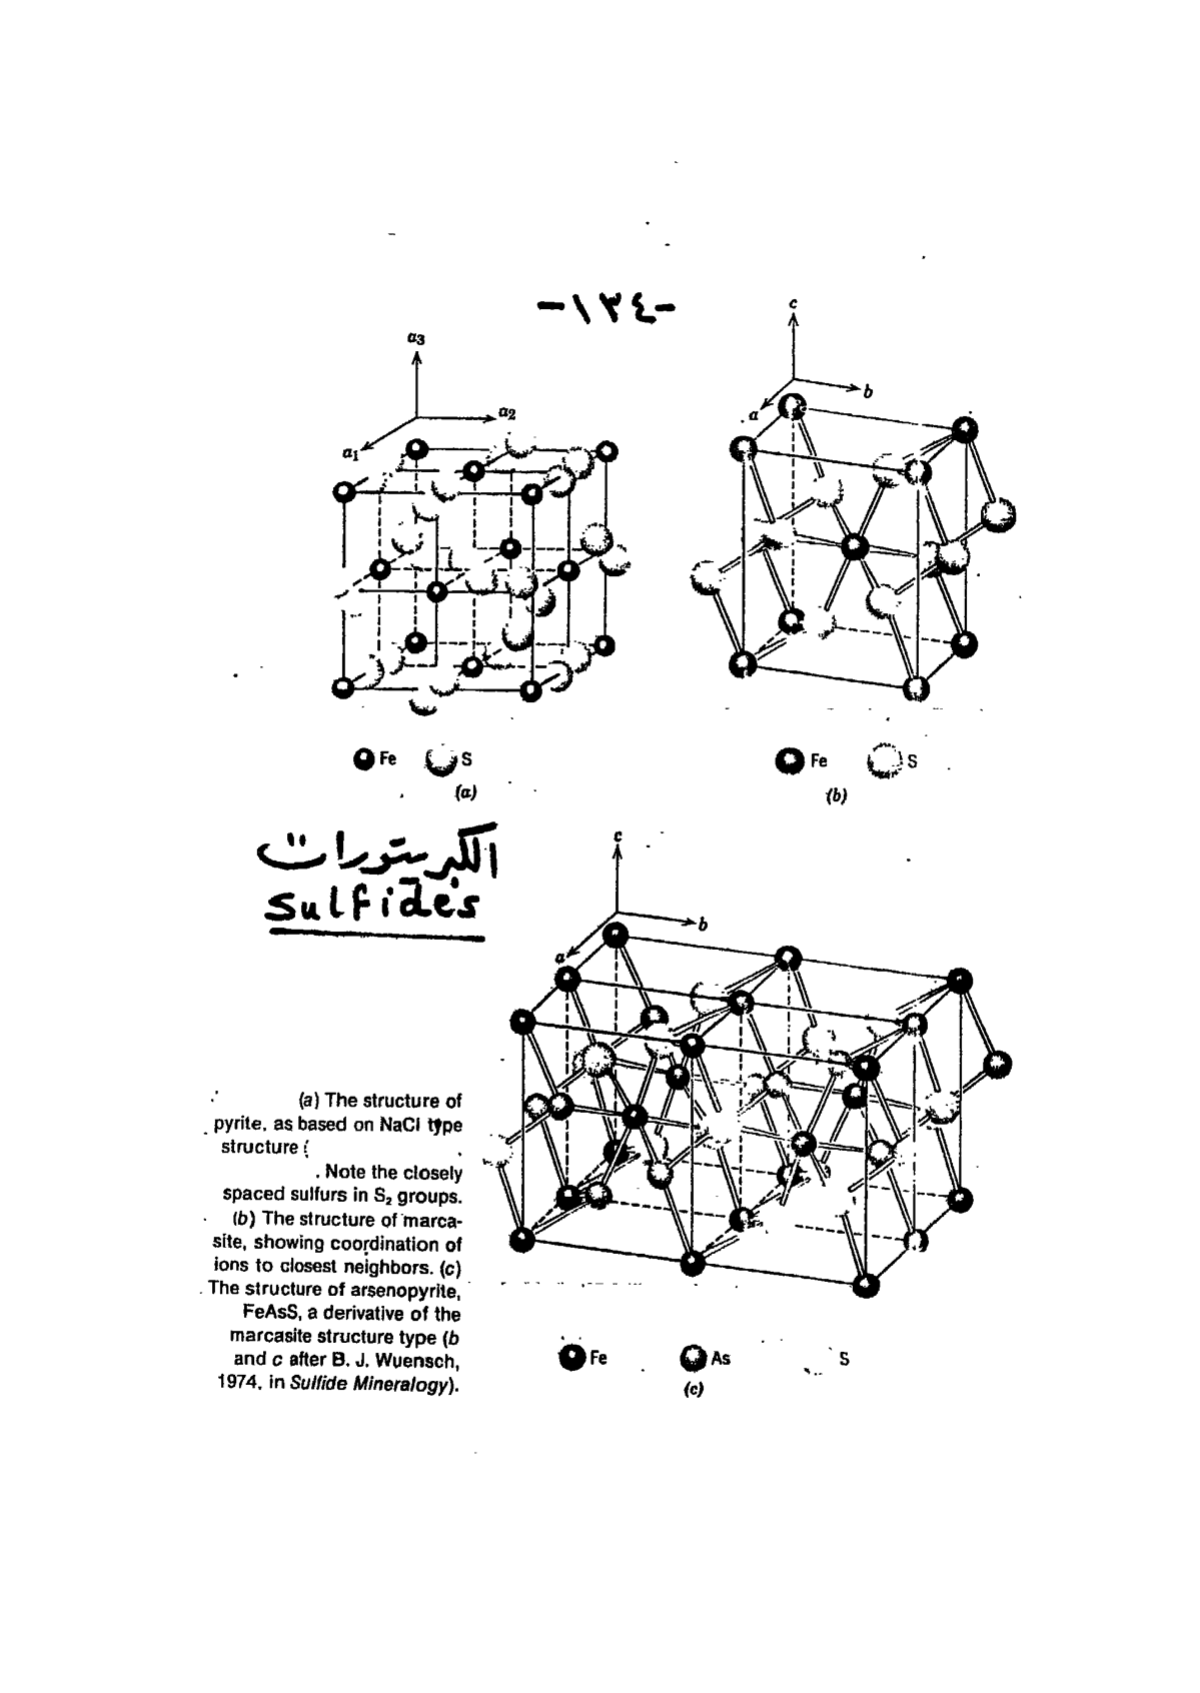 -١٣٤-
a3
a2
a1
c
b
a
Fe S
(a)
Fe S
(b)
الكبريتورات
Sulfides
c
b
a
(a) The structure of
pyrite, as based on NaCl type
structure (
. Note the closely
spaced sulfurs in S₂ groups.
(b) The structure of marca-
site, showing coordination of
ions to closest neighbors. (c)
The structure of arsenopyrite,
FeAsS, a derivative of the
marcasite structure type (b
and c after B. J. Wuensch,
1974, in Sulfide Mineralogy).
Fe As S
(c)